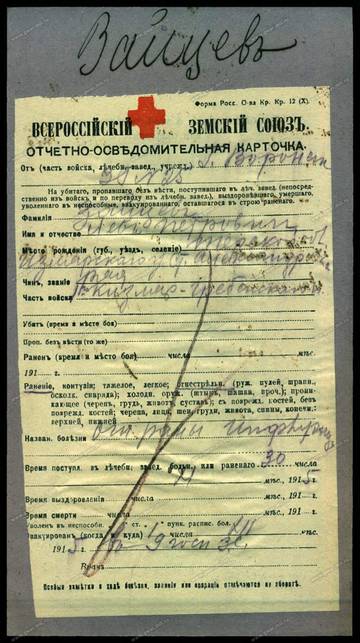 Зайцевъ
Форма Росс. О-ва Кр. Кр. 12 (X).
ВСЕРОССІЙСКІЙ ЗЕМСКІЙ СОЮЗЪ.
ОТЧЕТНО-ОСВѢДОМИТЕЛЬНАЯ КАРТОЧКА.
Отъ (часть войска, лѣчебн. завед., учрежд.) г. Воронеж
На убитаго, пропавшаго безъ вѣсти, поступившаго въ лѣч. завед. (непосред-
ственно изъ войскъ, и по переводу изъ лѣчебн. завед.), выздоровѣвшаго, умершаго,
уволеннаго въ неспособные, эвакуированнаго, оставшагося въ строю раненаго.
Фамилія
Имя и отчество Петровичъ
Мѣсто рожденія (губ., уѣздъ, селеніе) Терской
Чинъ, званіе
Часть войска Кизляр-Гребенской
Убитъ (время и мѣсто боя)
Проп. безъ вѣсти (то же)
Раненъ (время и мѣсто боя) числа мѣс.
191 г.
Раненіе, контузія; тяжелое, легкое; огнестрѣльн. (руж. пулей, шрапн.,
осколк. снаряда); холодн. оруж. (штыкъ, шашка, проч.); прони-
кающее (черепъ, грудь, животъ, суставъ); съ поврежд. костей, безъ
поврежд. костей; черепа, лица, шеи, груди, живота, спины, конечн.:
верхней, нижней
Назван. болѣзни
Время поступл. въ лѣчебн. завед. больн. или раненаго 30 числа
XI мѣс. 1915 г.
Время выздоровленія числа мѣс. 191 г.
Время смерти числа мѣс. 191 г.
Уволенъ въ неспособн. ст. пунк. распис. бол.
Эвакуированъ (когда и куда)
1915 г. 9 госп ЗС.
Врачъ
Особыя замѣтки о ходѣ болѣзни, раненія или операціи отмѣчаются на оборотѣ.